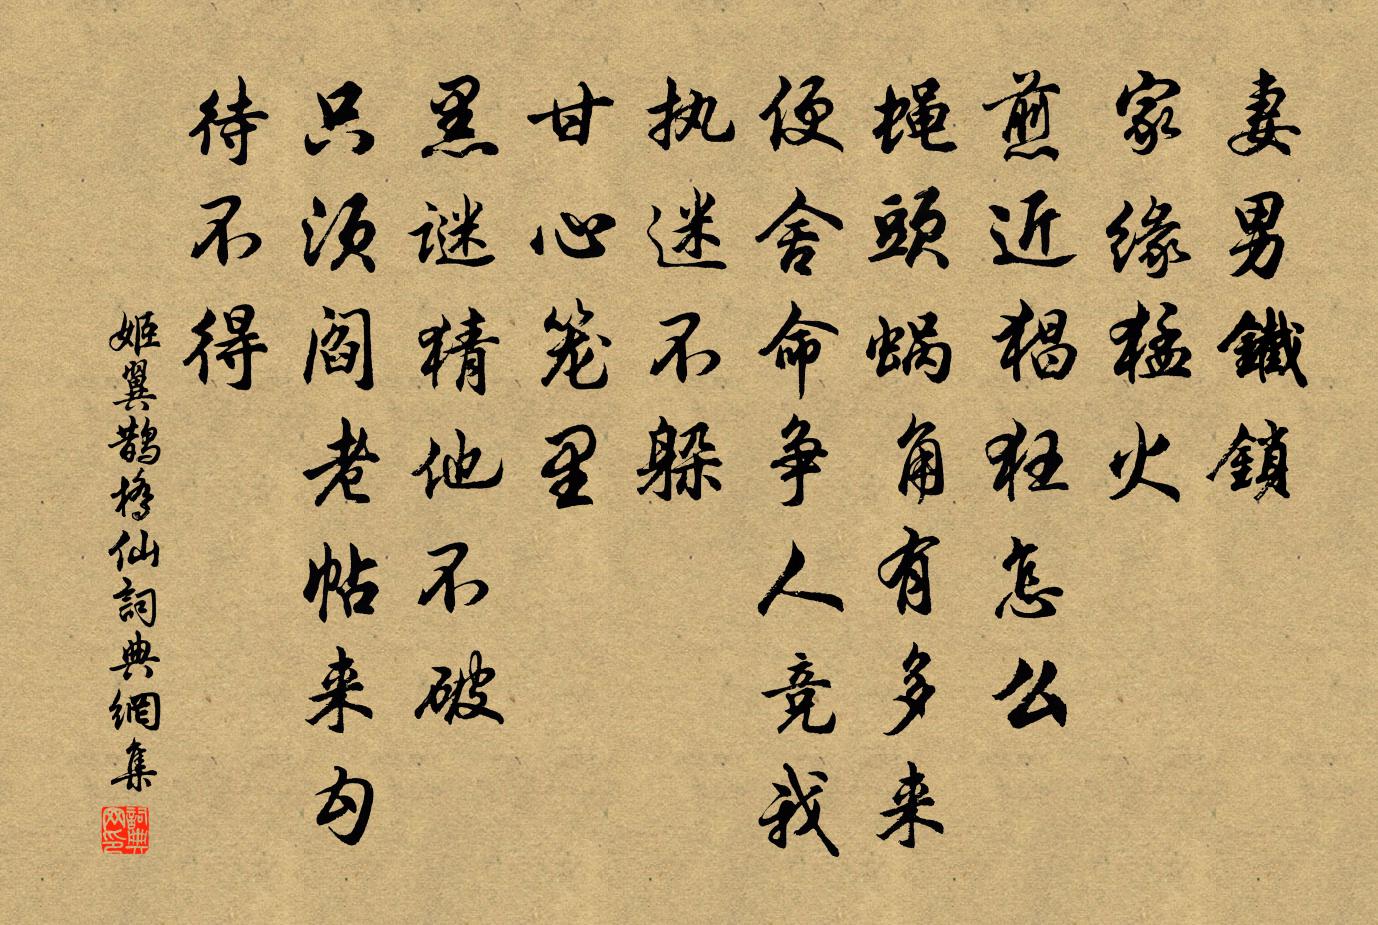 妻男鐵鎖
家缘猛火
煎近猖狂怎么
蝇頭蜗角有多来
便舍命争人竞我
执迷不躲
甘心笼里
黑谜猜他不破
只须阎老帖来勾
待不得
姬翼鹊橋仙詞典網集
詞典
网印